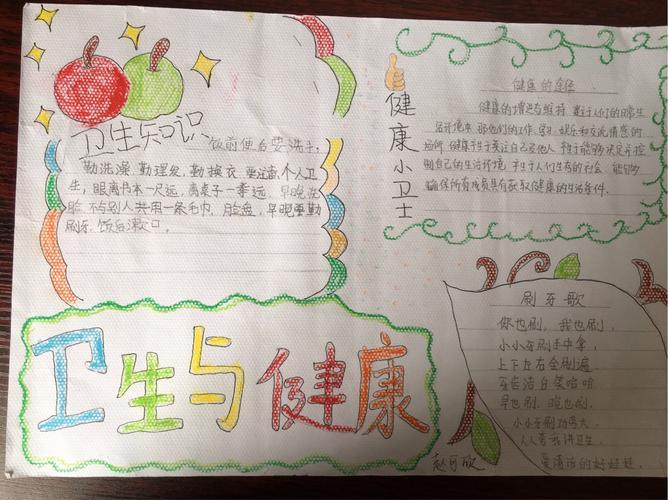 卫生知识
饭前便后要洗手,
勤洗澡,勤理发,勤换衣,更注意个人卫
生,眼离书本一尺远,离桌子一拳远,早晚洗
脸,不与别人共用一条毛巾,脸盘,早晚要勤
刷牙,饭后漱口。
健康小卫士
健康的途径
健康的增进与维持,基于人们的日常生
活环境中,那他们的工作,学习,娱乐和交流情感的
场所,健康基于关注自己及他人,基于能够决定并控
制自己的生活环境,基于人们生存的社会,能够
确保所有成员具有获取健康的生活条件.
刷牙歌
你也刷,我也刷,
小小牙刷手中拿,
上下左右全刷遍,
牙齿洁白笑哈哈
早也刷,晚也刷,
小小牙刷功劳大,
人人夸我讲卫生,
爱清洁的好娃娃.
卫生与健康
赵可欣